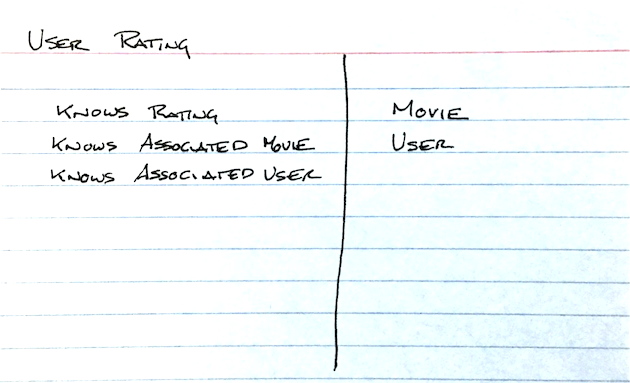 USER RATING
KNOWS RATING
KNOWS ASSOCIATED MOVIE
KNOWS ASSOCIATED USER
MOVIE
USER